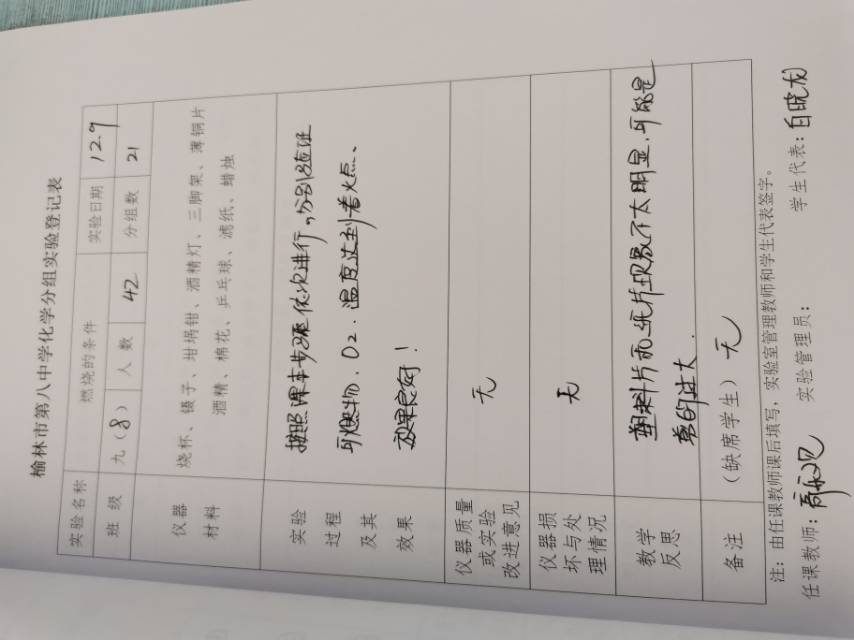 榆林市第八中学化学分组实验登记表
实验名称 燃烧的条件 实验日期 12.9
班级 九(8) 人数 42 分组数 21
仪器材料 烧杯、镊子、坩埚钳、酒精灯、三脚架、薄铜片
酒精、棉花、乒乓球、滤纸、蜡烛
实验过程及其效果 按照课本步骤依次进行,分别验证
可燃物、O2、温度达到着火点、
效果良好!
仪器质量或实验改进意见 无
仪器损坏与处理情况 无
教学反思 塑料片和纸片现象不太明显,可能是
剪的过大.
备注 (缺席学生) 无
注:由任课教师课后填写,实验室管理教师和学生代表签字。
任课教师: 实验管理员: 学生代表:白晓龙